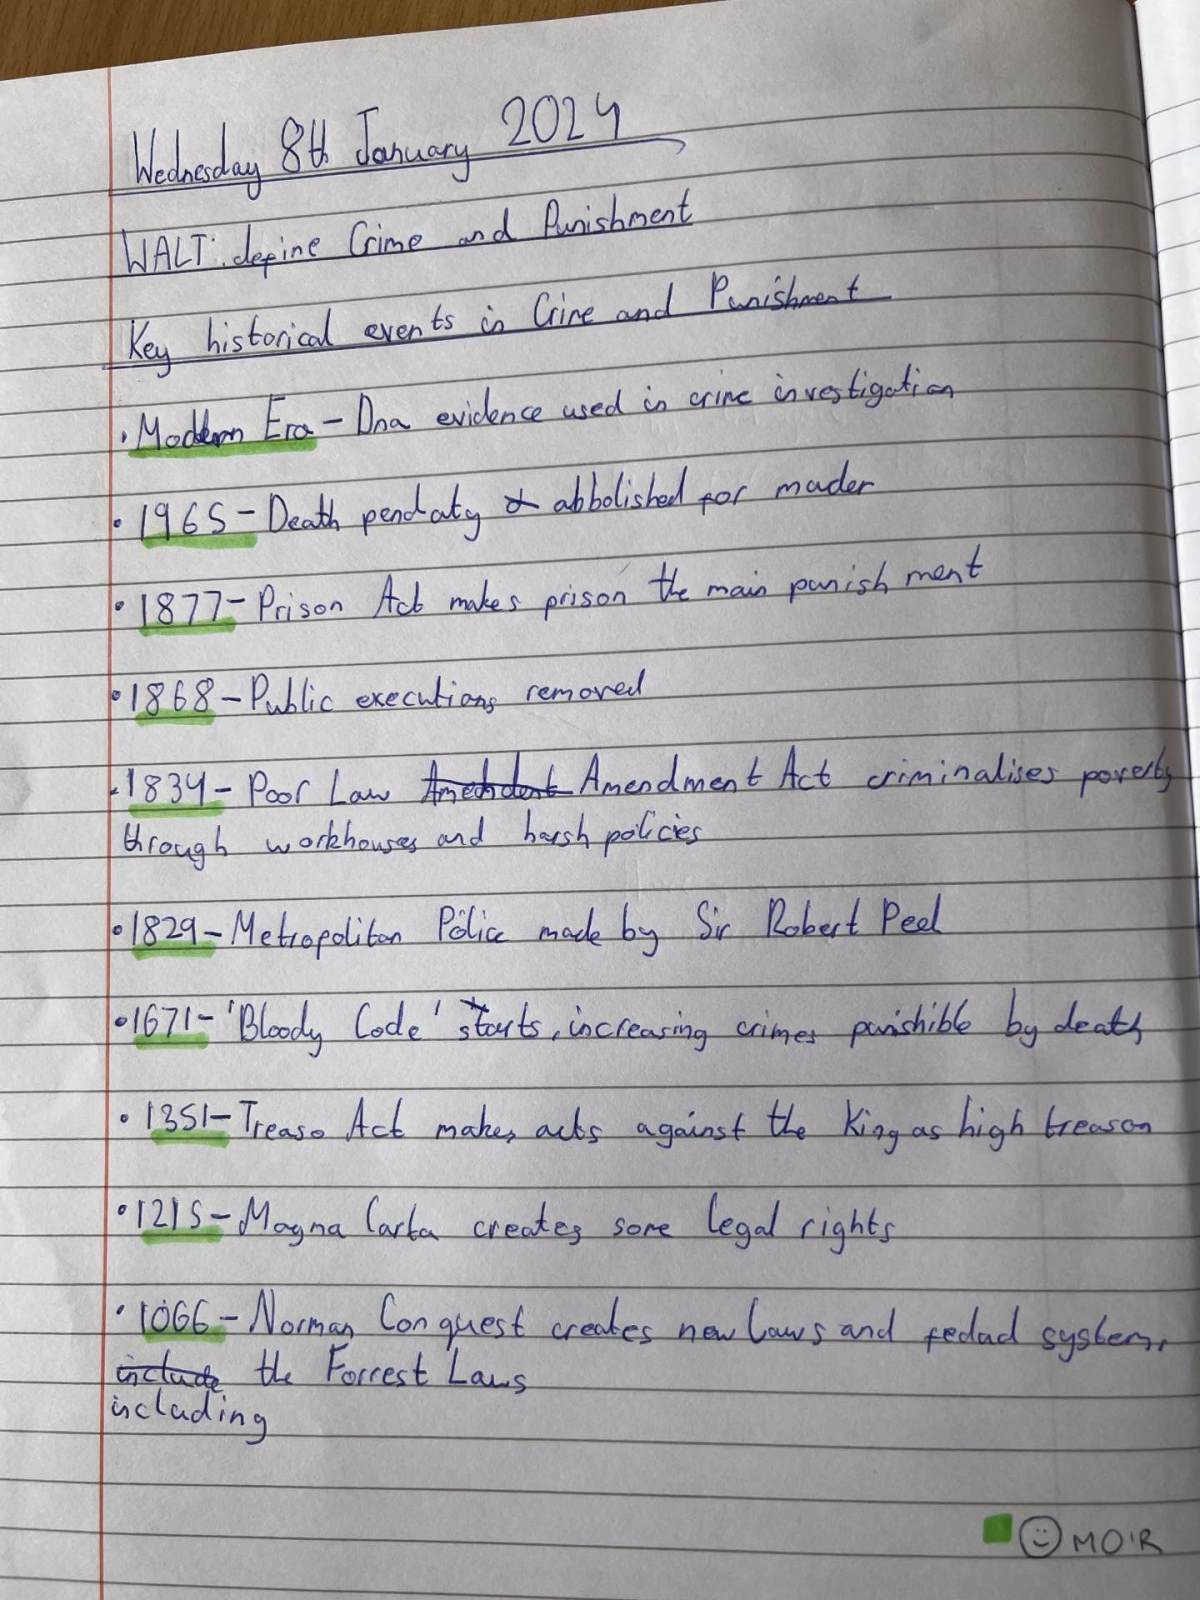 Wednesday 8th January 2024
WALT: define Crime and Punishment
Key historical events in Crime and Punishment
• Modern Era - Dna evidence used in crime investigation
• 1965 - Death pendaty abbolished for mader
• 1877 - Prison Act makes prison the main punishment
• 1868 - Public executions removed
• 1834 - Poor Law Amendment Act criminalises poverty
through workhouses and harsh policies
• 1829 - Metropolitan Police made by Sir Robert Peel
• 1671 - 'Bloody Code' starts, increasing crimes punishible by death
• 1351 - Treaso Act makes acts against the King as high treason
• 1215 - Magna Carta creates some legal rights
• 1066 - Norman Conquest creates new laws and fedad system,
include the Forrest Laws
including
MO'R